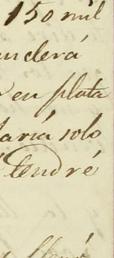 150 mil
nderá
en plata
daría solo
tendré